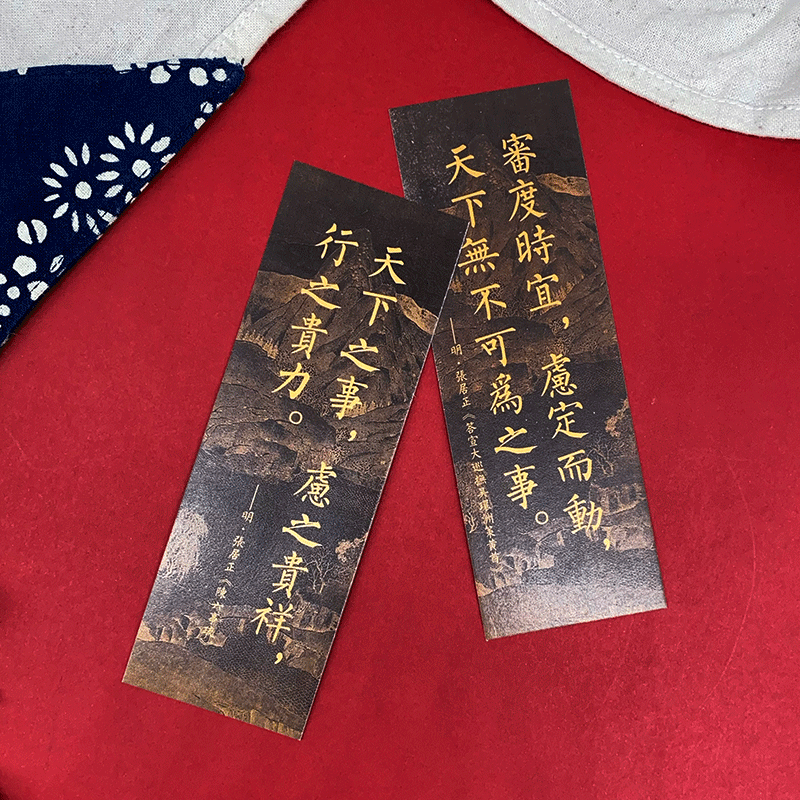 天下之事，慮之貴祥，
行之貴力。
——明 張居正《陳六事疏》
審度時宜，慮定而動，
天下無不可爲之事。
——明 張居正《答宣大巡撫吳環洲策黃酋》